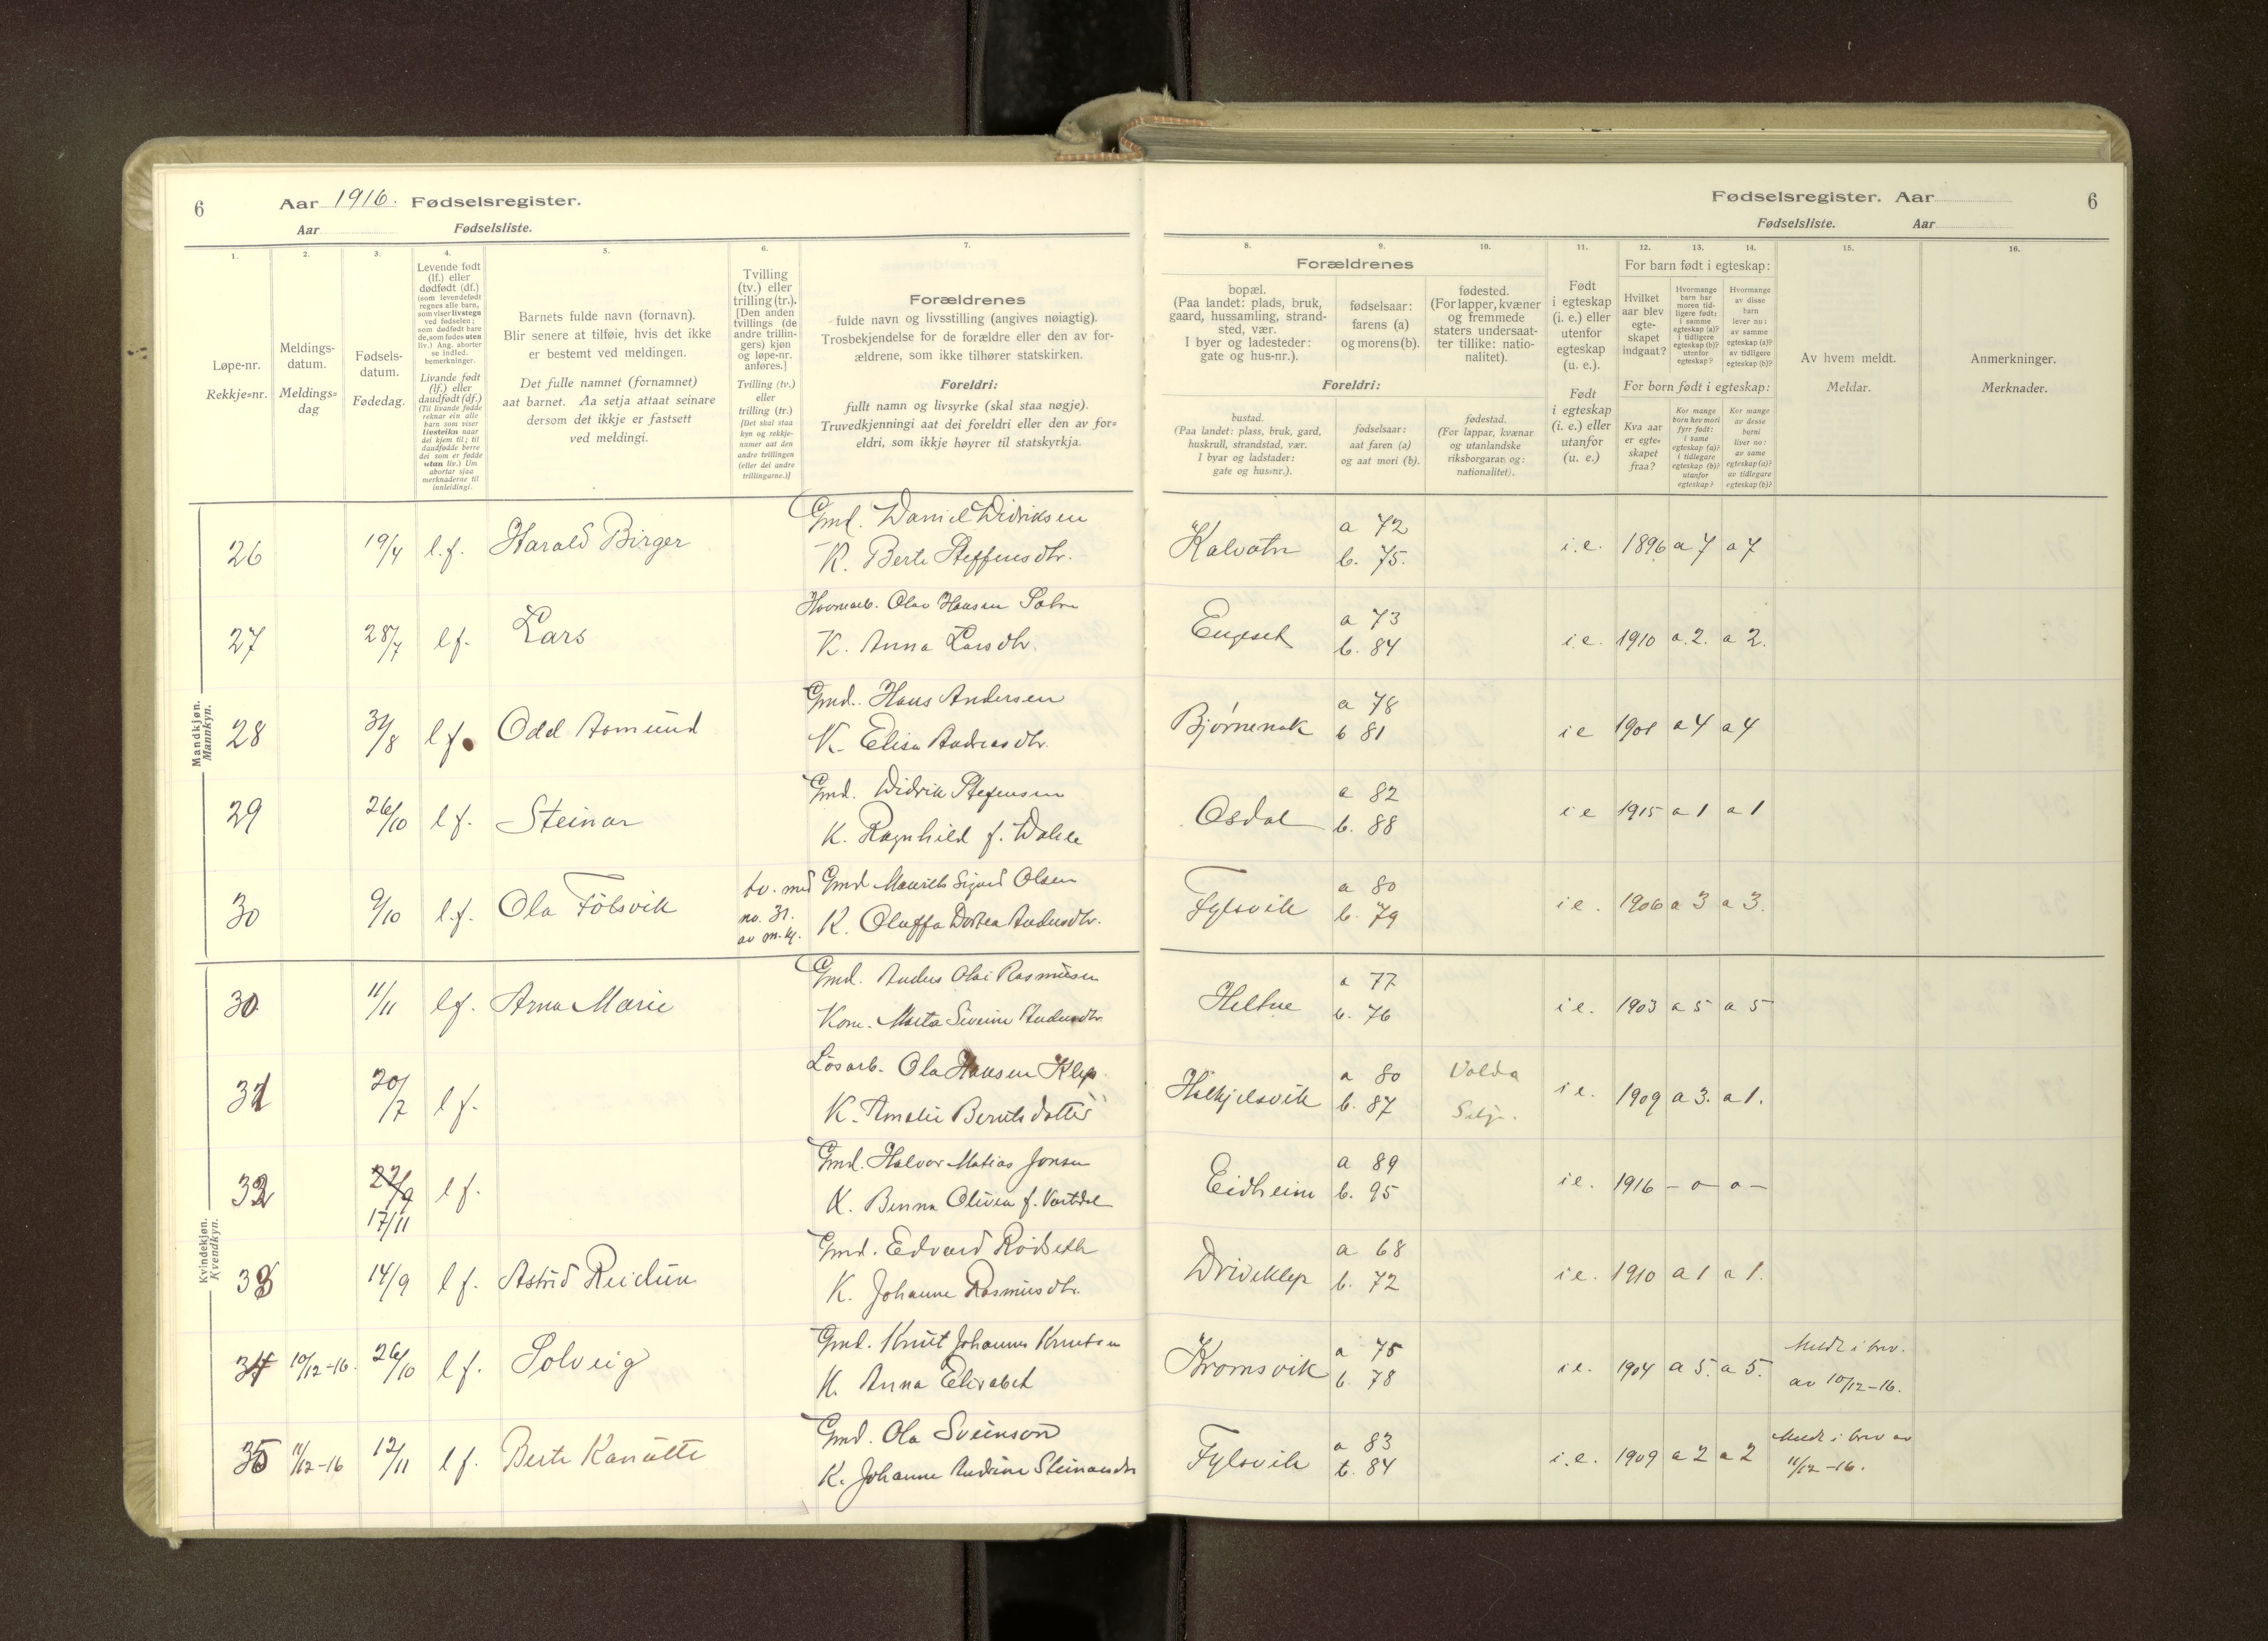 6 Aar 1916. Fødselsregister.
Aar Fødselsliste.
1. 2. 3. 4. 5. 6. 7.
Løpe-nr.
Rekkje=nr.
Meldings-
datum.
Meldings=
dag
Fødsels-
datum.
Fødedag.
Levende født
(lf.) eller
dødfødt (df.)
(som levendefødt
regnes alle barn,
som viser livstegn
ved fødselen;
som dødfødt bare
de, som fødes uten
liv.) Ang. aborter
se indled.
bemerkninger.
Livande født
(lf.) eller
daudfødt (df.)
(Til livande fødde
reknar ein alle
barn som viser
livsteikn naar
dei kjem til; til
daudfødde berre
dei som er fødde
utan liv.) Um
abortar sjaa
merknaderne til
innleidingi.
Barnets fulde navn (fornavn).
Blir senere at tilføie, hvis det ikke
er bestemt ved meldingen.
Det fulle namnet (fornamnet)
aat barnet. Aa setja attaat seinare
dersom det ikkje er fastsett
ved meldingi.
Tvilling
(tv.) eller
trilling (tr.).
[Den anden
tvillings (de
andre trillin-
gers) kjøn
og løpe-nr.
anføres.]
Tvilling (tv.)
eller
trilling (tr.)
[Det skal staa
kyn og rekkje-
numer aat den
andre tvillingen
(eller dei andre
trillingarne.)]
Forældrenes
fulde navn og livsstilling (angives nøiagtig).
Trosbekjendelse for de forældre eller den av for-
ældrene, som ikke tilhører statskirken.
Foreldri:
fullt namn og livsyrke (skal staa nøgje).
Truvedkjenningi aat dei foreldri eller den av for=
eldri, som ikkje høyrer til statskyrkja.
Mandkjøn.
Mannkyn.
26 19/4 l.f. Harald Birger
Gmd. Daniel Didriksen
K. Berte Steffensdtr.
27 28/7 l f. Lars
Havnearb. Olav Hansen
K. Anna Larsdtr.
28 31/8 l f. Odd Asmund
Gmd. Hans Andersen
K. Elisa Andreasdtr.
29 26/10 l f. Steinar
Gmd. Didrik Stefensen
K. Ragnhild f. Wahle
30 9/10 l.f. Ola
tv. med
no. 31.
av m.kj.
Gmd Sigurd Olsen
K. Oluffa Dortea Andersdtr.
Kvindekjøn.
Kvendkyn.
30. 11/11 l f. Arna Marie
Gmd. Anders Olai Rasmusen
Kone. Marta Severine Andersdtr.
31 20/7 l f.
Løsarb. Ola Hansen Klep.
K. Amalie Berntsdatter
32 27/9 17/11 l f.
Gmd. Halvor Matias Jonsen
K. Benna Olivia f. Vartdal
33 14/9 l f. Astrid Reidun
Gmd. Edvard Rödseth
K. Johanne Rasmusdtr.
34 10/12-16. 26/10 l f. Solveig
Gmd. Knut Johannes Knutsen
K. Anna Elisabet
35 11/12-16 12/11 l f. Berte Kanutte
Gmd. Ola Sveinson
K. Johanne Andrine Steinarsdtr
Fødselsregister. Aar 6
Fødselsliste. Aar
8. 9. 10. 11. 12. 13. 14. 15. 16.
Forældrenes
bopæl.
(Paa landet: plads, bruk,
gaard, hussamling, strand-
sted, vær.
I byer og ladesteder:
gate og hus-nr.).
fødselsaar:
farens (a)
og morens (b).
fødested.
(For lapper, kvæner
og fremmede
staters undersaat-
ter tillike: natio-
nalitet).
Foreldri:
bustad.
(Paa landet: plass, bruk, gard,
huskrull, strandstad, vær.
I byar og ladstader:
gate og hus=nr.).
fødselsaar:
aat faren (a)
og aat mori (b).
fødestad.
(For lappar, kvænar
og utanlandske
riksborgarar, og:
nationalitet).
Født
i egteskap
(i. e.) eller
utenfor
egteskap
(u. e.).
Født
i egteskap
(i. e.) eller
utanfor
(u. e.)
For barn født i egteskap:
Hvilket
aar blev
egte-
skapet
indgaat?
Hvormange
barn har
moren tid-
ligere født:
i samme
egteskap (a)?
i tidligere
egteskap (b)?
utenfor
egteskap?
Hvormange
av disse
barn
lever nu:
av samme
egteskap (a)?
av tidligere
egteskap (b)?
For born født i egteskap:
Kva aar
er egte=
skapet
fraa?
Kor mange
born hev mori
fyrr født:
i same
egteskap (a)?
i tidlegare
egteskap (b)?
utanfor
egteskap?
Kor mange
av desse
borni
liver no:
av same
egteskap (a)?
av tidlegare
egteskap (b)?
Av hvem meldt.
Meldar.
Anmerkninger.
Merknader.
Kalvatn a 72 b. 75. i.e. 1896 a 7 a 7
Engeset a 73 b. 84 i.e. 1910 a. 2. a 2.
Bjørnenak a 78 b 81 i e 1901 a 4 a 4
Osdal a 82 b. 88 i e 1915 a 1 a 1
Fylsvik a 80 b. 79 i e. 1906 a 3 a 3.
Heltne a 77 b. 76 i e. 1903 a 5 a 5
Halkjelsvik a 80 b. 87 Volda Selje. i e. 1909 a 3. a 1.
Eidheim a 89 b. 95 i e. 1916 - o - o -
Driveklep a 68 b. 72 i e. 1910 a 1 a 1.
Kromsvik a 75 b. 78 i e. 1904 a 5. a 5. Meldt i brev.
av 10/12-16.
Fylsvik a 83 b. 84 i. e. 1909 a 2 a 2 Meldt i brev av
11/12-16.